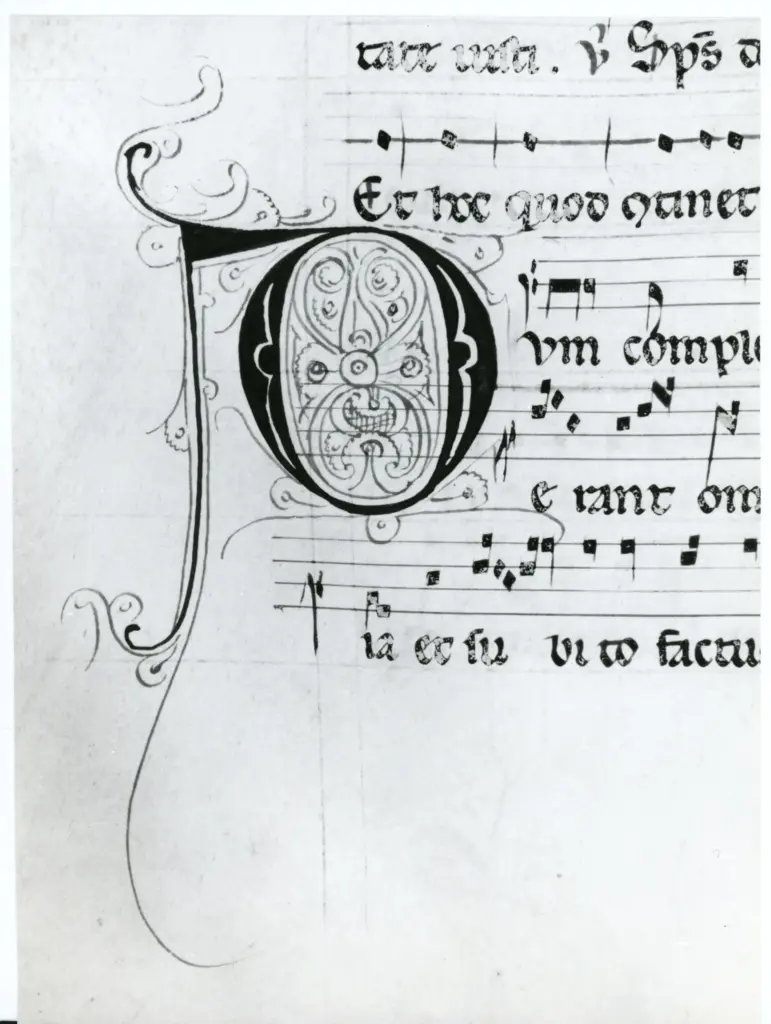 tate uṙa. ℣ Sp̄s d
Et hoc quod ꝯtinet
D
vm comple
e rant om
ia et su bi to factu